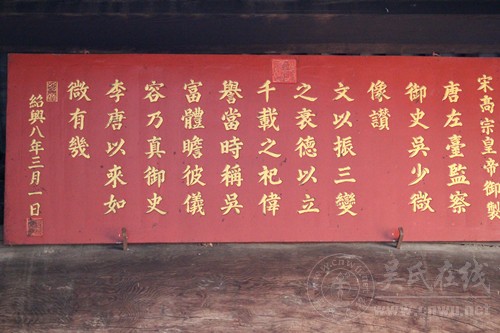 宋高宗皇帝御製
唐左臺監察
御史吳少微
像讚
文以振三變
之衰德以立
千載之祀偉
譽當時稱吳
富體瞻彼儀
容乃真御史
李唐以來如
微有幾
紹興八年三月一日
吴氏在线
www.cnwu.net